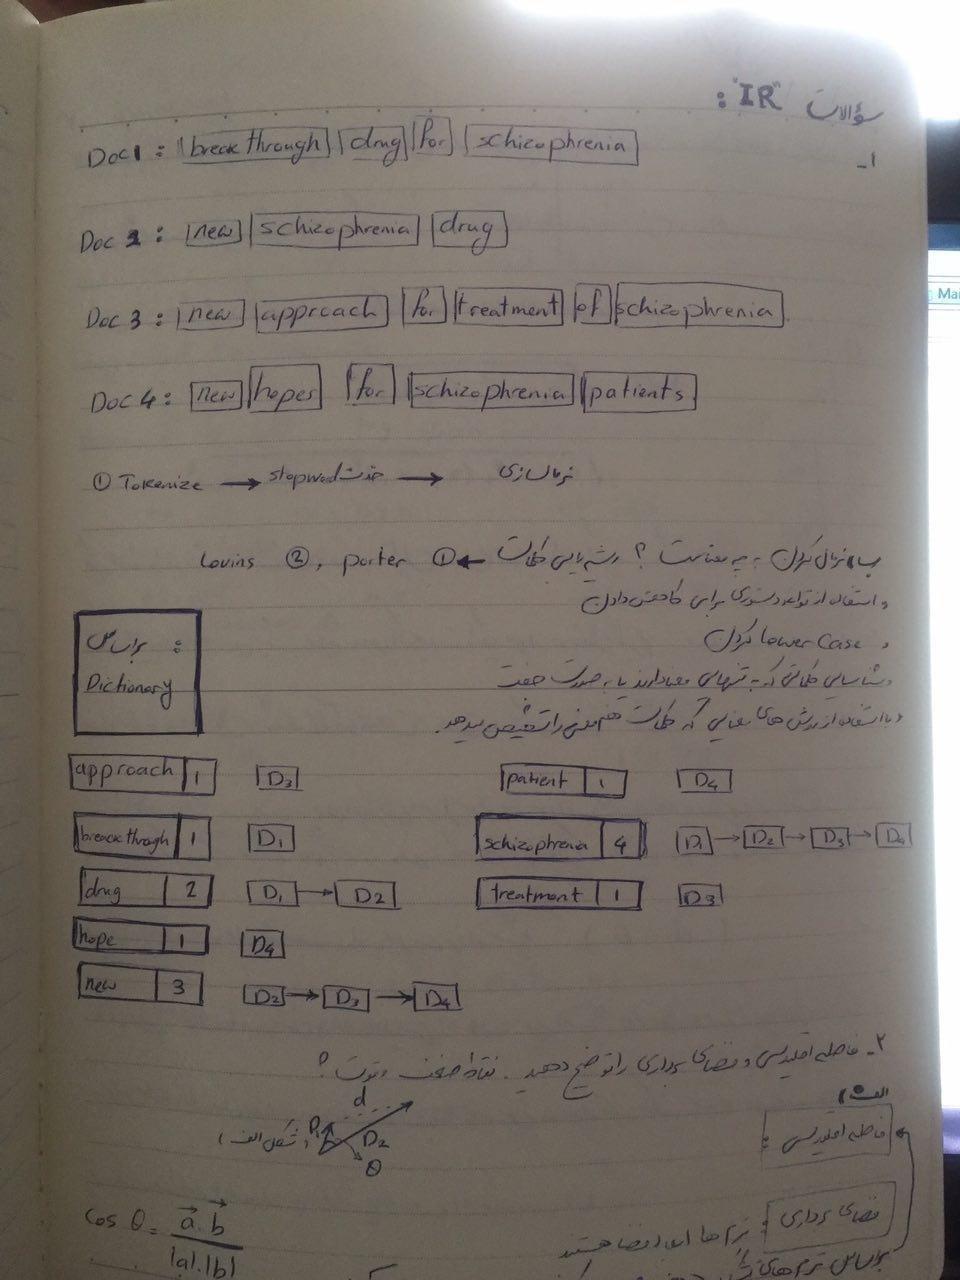 سؤالات "IR":
1-
Doc 1: breakthrough drug for schizophrenia
Doc 2: new schizophrenia drug
Doc 3: new approach for treatment of schizophrenia
Doc 4: new hopes for schizophrenia patients
① Tokenize → stopword حذف → نرمال‌سازی
ب) نرمال کردن به چه معناست؟ ریشه‌یابی کلمات ← ① porter , ② Lovins
و استفاده از قواعد دستوری برای کاهش دادن
و lower case کردن
و شناسایی کلماتی که به تنهایی معنا دارند یا به صورت جفت
و با استفاده از روش های معنایی که کلمات هم معنی را تشخیص میدهد.
براساس :
Dictionary
approach 1 D3
breackthrough 1 D1
drug 2 D1 → D2
hope 1 D4
new 3 D2 → D3 → D4
patient 1 D4
schizophrenia 4 D1 → D2 → D3 → D4
treatment 1 D3
2- فاصله اقلیدسی و فضای برداری را توضیح دهید. نقاط ضعف و قوت؟
الف)
فاصله اقلیدسی :
d
D1
D2
θ
(شکل الف)
فضای برداری : ترم ها ابعاد فضا هستند
cos θ = a.b / |a|.|b|
براساس ترم های